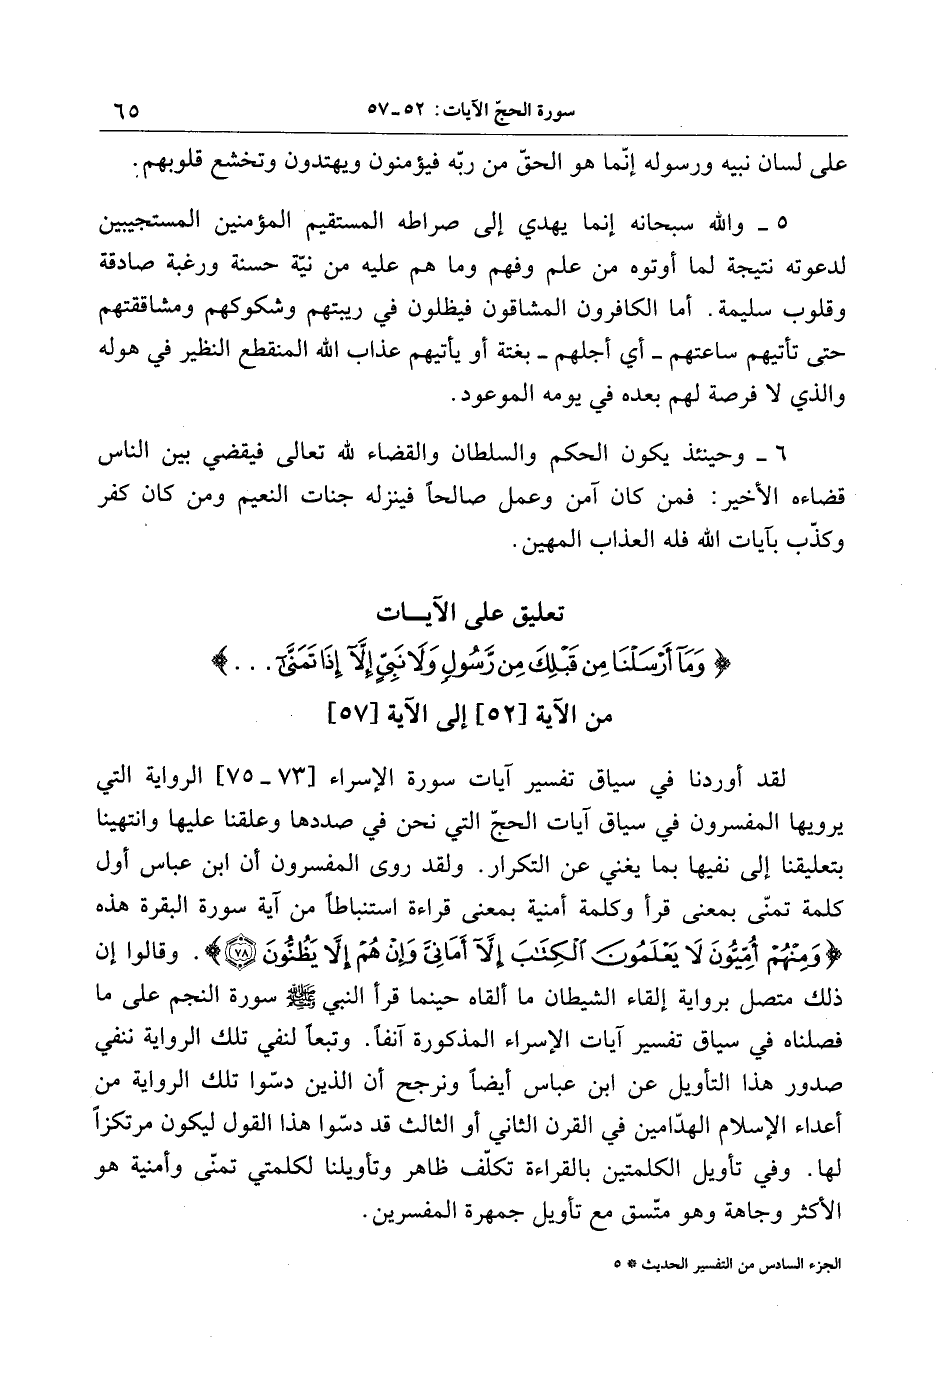 سورة الحجّ الآيات: ٥٢ـ٥٧ ٦٥
على لسان نبيه ورسوله إنّما هو الحقّ من ربّه فيؤمنون ويهتدون وتخشع قلوبهم.
٥ ـ والله سبحانه إنما يهدي إلى صراطه المستقيم المؤمنين المستجيبين
لدعوته نتيجة لما أوتوه من علم وفهم وما هم عليه من نيّة حسنة ورغبة صادقة
وقلوب سليمة. أما الكافرون المشاقون فيظلون في ريبتهم وشكوكهم ومشاققتهم
حتى تأتيهم ساعتهم ـ أي أجلهم ـ بغتة أو يأتيهم عذاب الله المنقطع النظير في هوله
والذي لا فرصة لهم بعده في يومه الموعود.
٦ ـ وحينئذ يكون الحكم والسلطان والقضاء لله تعالى فيقضي بين الناس
قضاءه الأخير: فمن كان آمن وعمل صالحاً فينزله جنات النعيم ومن كان كفر
وكذّب بآيات الله فله العذاب المهين.
تعليق على الآيـــات
﴿ وَمَآ أَرْسَلْنَا مِن قَبْلِكَ مِن رَّسُولٍ وَلَا نَبِيٍّ إِلَّآ إِذَا تَمَنَّىٰٓ . . . ﴾
من الآية [٥٢] إلى الآية [٥٧]
لقد أوردنا في سياق تفسير آيات سورة الإسراء [٧٣ ـ ٧٥] الرواية التي
يرويها المفسرون في سياق آيات الحجّ التي نحن في صددها وعلقنا عليها وانتهينا
بتعليقنا إلى نفيها بما يغني عن التكرار. ولقد روى المفسرون أن ابن عباس أول
كلمة تمنّى بمعنى قرأ وكلمة أمنية بمعنى قراءة استنباطاً من آية سورة البقرة هذه
﴿ وَمِنْهُمْ أُمِّيُّونَ لَا يَعْلَمُونَ ٱلْكِتَٰبَ إِلَّآ أَمَانِىَّ وَإِنْ هُمْ إِلَّا يَظُنُّونَ ٧٨ ﴾. وقالوا إن
ذلك متصل برواية إلقاء الشيطان ما ألقاه حينما قرأ النبي ﷺ سورة النجم على ما
فصلناه في سياق تفسير آيات الإسراء المذكورة آنفاً. وتبعاً لنفي تلك الرواية ننفي
صدور هذا التأويل عن ابن عباس أيضاً ونرجح أن الذين دسّوا تلك الرواية من
أعداء الإسلام الهدّامين في القرن الثاني أو الثالث قد دسّوا هذا القول ليكون مرتكزاً
لها. وفي تأويل الكلمتين بالقراءة تكلّف ظاهر وتأويلنا لكلمتي تمنّى وأمنية هو
الأكثر وجاهة وهو متّسق مع تأويل جمهرة المفسرين.
الجزء السادس من التفسير الحديث * ٥